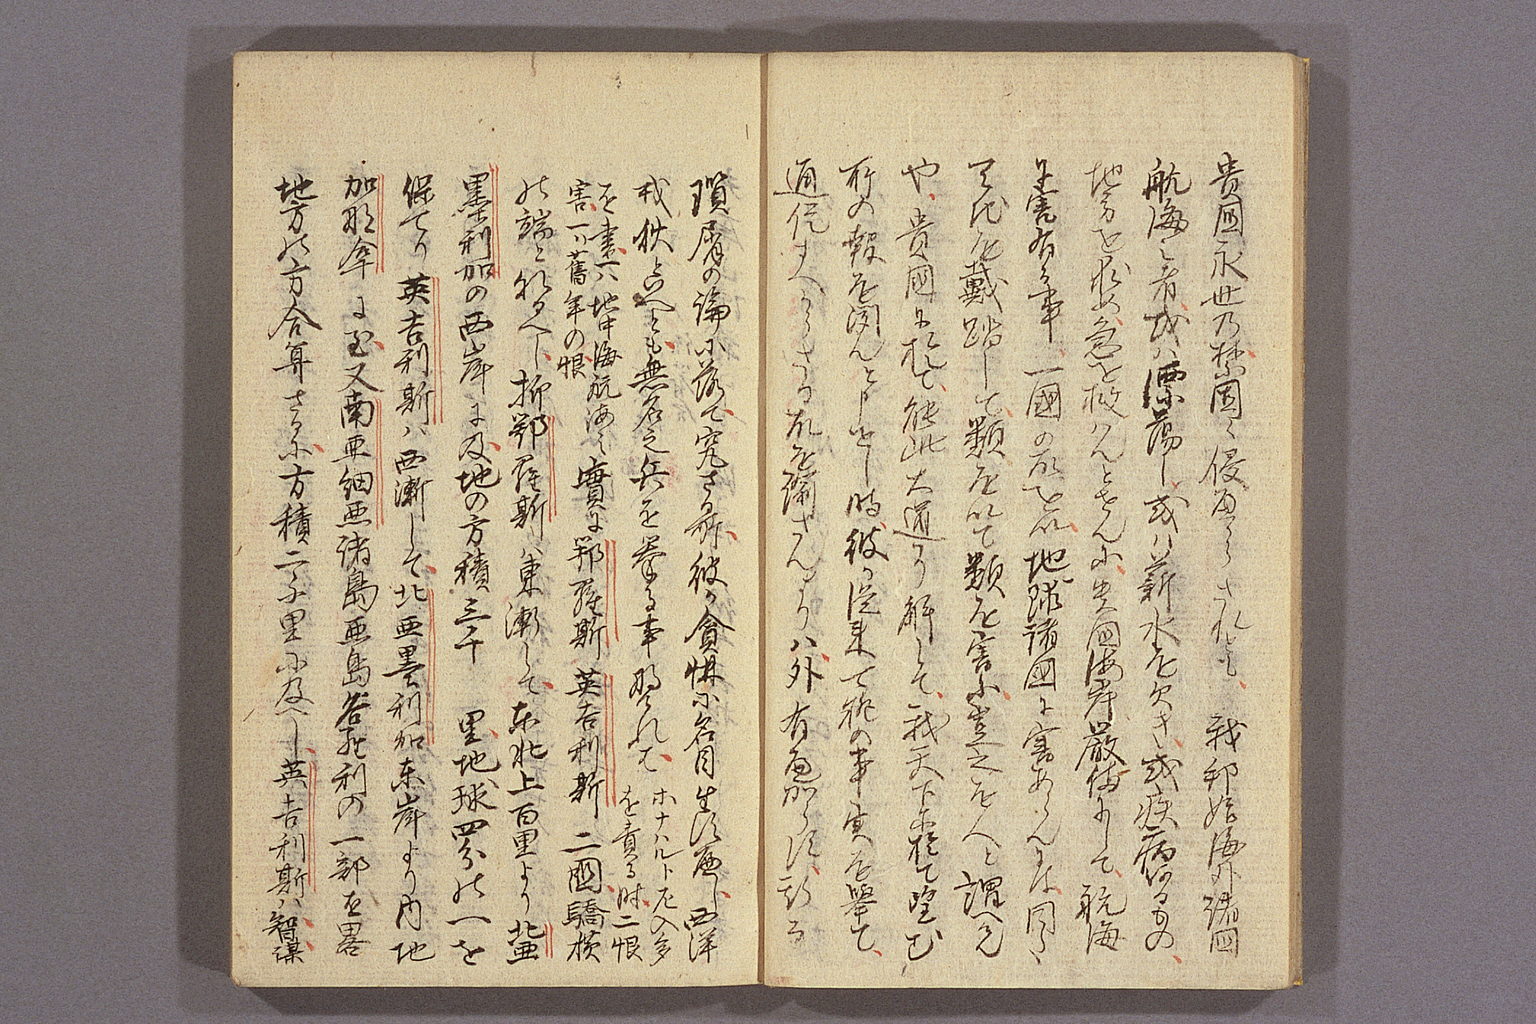 貴國永世乃禁固く侵すへからされとも、我邦始海外諸国
航海之者、或ハ漂蕩し或ハ薪水を欠き、或疾病有るもの、
地方を求め急を救ハんとせんに、貴國海岸厳備にして航海
に害有る事、一國の故を以、地球諸國に害あらんは、同く、
天を戴踏して類を以て類を害ふ、豈之を人と謂へけん
や、貴國に於て能此大道を解して、我天下に於て望む
所の趣を聞んと申し時、彼か従来て我の事実を挙て、
通信すへからさる故を諭さんより外有へからす、斯る
瑣屑の論に落て究る所、彼か貪惏に名目生すへし、西洋
戎狄といへとも、無名之兵を挙る事なけれは、ホナハルト厄入多
を責る時、二恨
を書ス、一ハ地中海航海之
害、一ハ舊年の恨
實に鄂羅斯英吉利斯二國驕横
の端となるへし、抑鄂羅斯ハ東漸して、東北上百里より北亜
墨利加の西岸に及、地の方積三千 里、地球四分の一を
保てり、英吉利斯ハ西漸して、北亜墨利加東岸より内地
加那陀に至、又南亜細亜諸島亜島谷死利の一部を畧
地方の方合算するに、方積二千里に及へし、英吉利斯ハ智謀